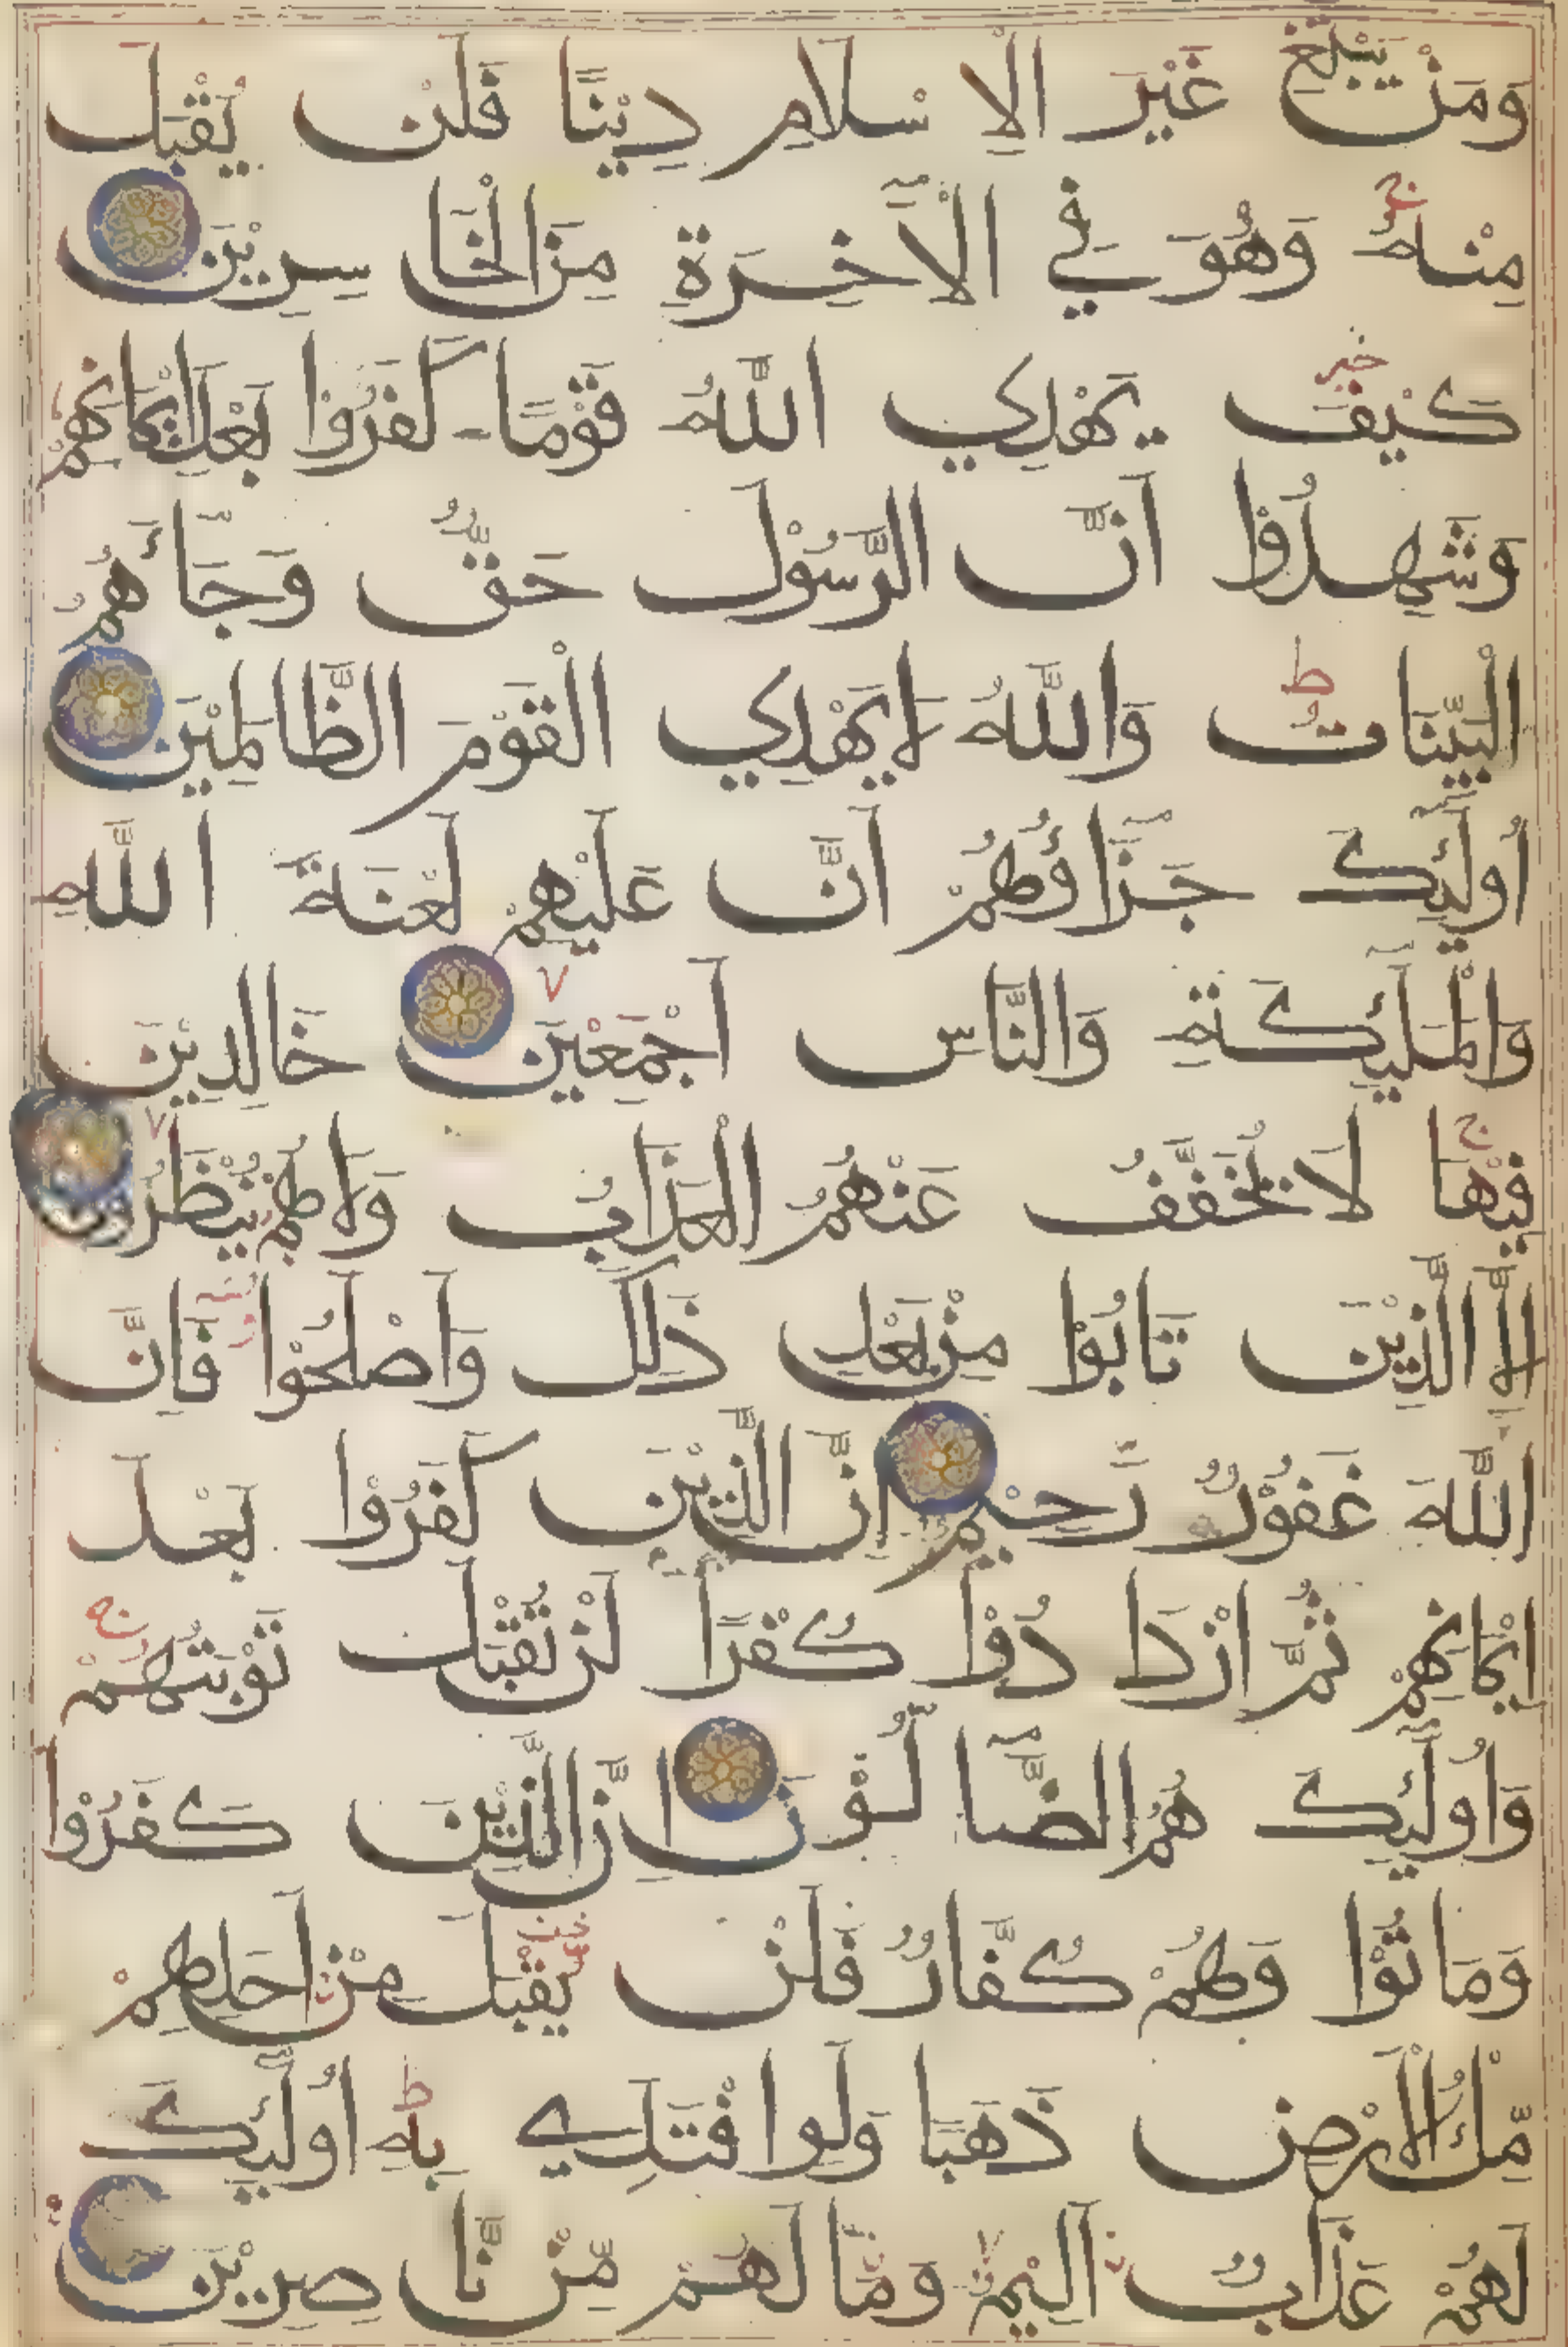 وَمَنْ يَبْتَغِ غَيْرَ الْاِسْلَامِ دِيْنًا فَلَنْ يُقْبَلَ
مِنْهُ ج وَهُوَ فِي الْاٰخِرَةِ مِنَ الْخَاسِرِيْنَ
كَيْفَ يَهْدِي اللّٰهُ قَوْمًا كَفَرُوْا بَعْدَ اِيْمَانِهِمْ
وَشَهِدُوْا اَنَّ الرَّسُوْلَ حَقٌّ وَجَآءَهُمُ
الْبَيِّنَاتُ ط وَاللّٰهُ لَا يَهْدِي الْقَوْمَ الظَّالِمِيْنَ
اُولٰٓئِكَ جَزَآؤُهُمْ اَنَّ عَلَيْهِمْ لَعْنَةَ اللّٰهِ
وَالْمَلٰٓئِكَةِ وَالنَّاسِ اَجْمَعِيْنَ خَالِدِيْنَ
فِيْهَا ج لَا يُخَفَّفُ عَنْهُمُ الْعَذَابُ وَلَا هُمْ يُنْظَرُوْنَ
اِلَّا الَّذِيْنَ تَابُوْا مِنْ بَعْدِ ذٰلِكَ وَاَصْلَحُوْا فَاِنَّ
اللّٰهَ غَفُوْرٌ رَّحِيْمٌ اِنَّ الَّذِيْنَ كَفَرُوْا بَعْدَ
اِيْمَانِهِمْ ثُمَّ ازْدَادُوْا كُفْرًا لَنْ تُقْبَلَ تَوْبَتُهُمْ ج
وَاُولٰٓئِكَ هُمُ الضَّآلُّوْنَ اِنَّ الَّذِيْنَ كَفَرُوْا
وَمَاتُوْا وَهُمْ كُفَّارٌ فَلَنْ يُقْبَلَ مِنْ اَحَدِهِمْ
مِّلْءُ الْاَرْضِ ذَهَبًا وَلَوِ افْتَدٰى بِهٖ ط اُولٰٓئِكَ
لَهُمْ عَذَابٌ اَلِيْمٌ وَمَا لَهُمْ مِّنْ نَّاصِرِيْنَ